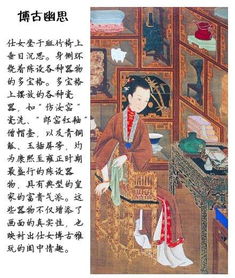 博古幽思
仕女坐于斑竹椅上
垂目沉思。身侧环
绕着陈设各种器物
的多宝格。多宝格
上摆放的各种瓷
器,如“仿汝窑”
瓷洗、“郎窑红釉”
僧帽壶,以及青铜
觚、玉插屏等,均
为康熙至雍正时期
最盛行的陈设器
物,具有典型的皇
家的富贵气派。这
些器物不仅增添了
画面的真实性,也
映衬出仕女博古雅
玩的闺中情趣。